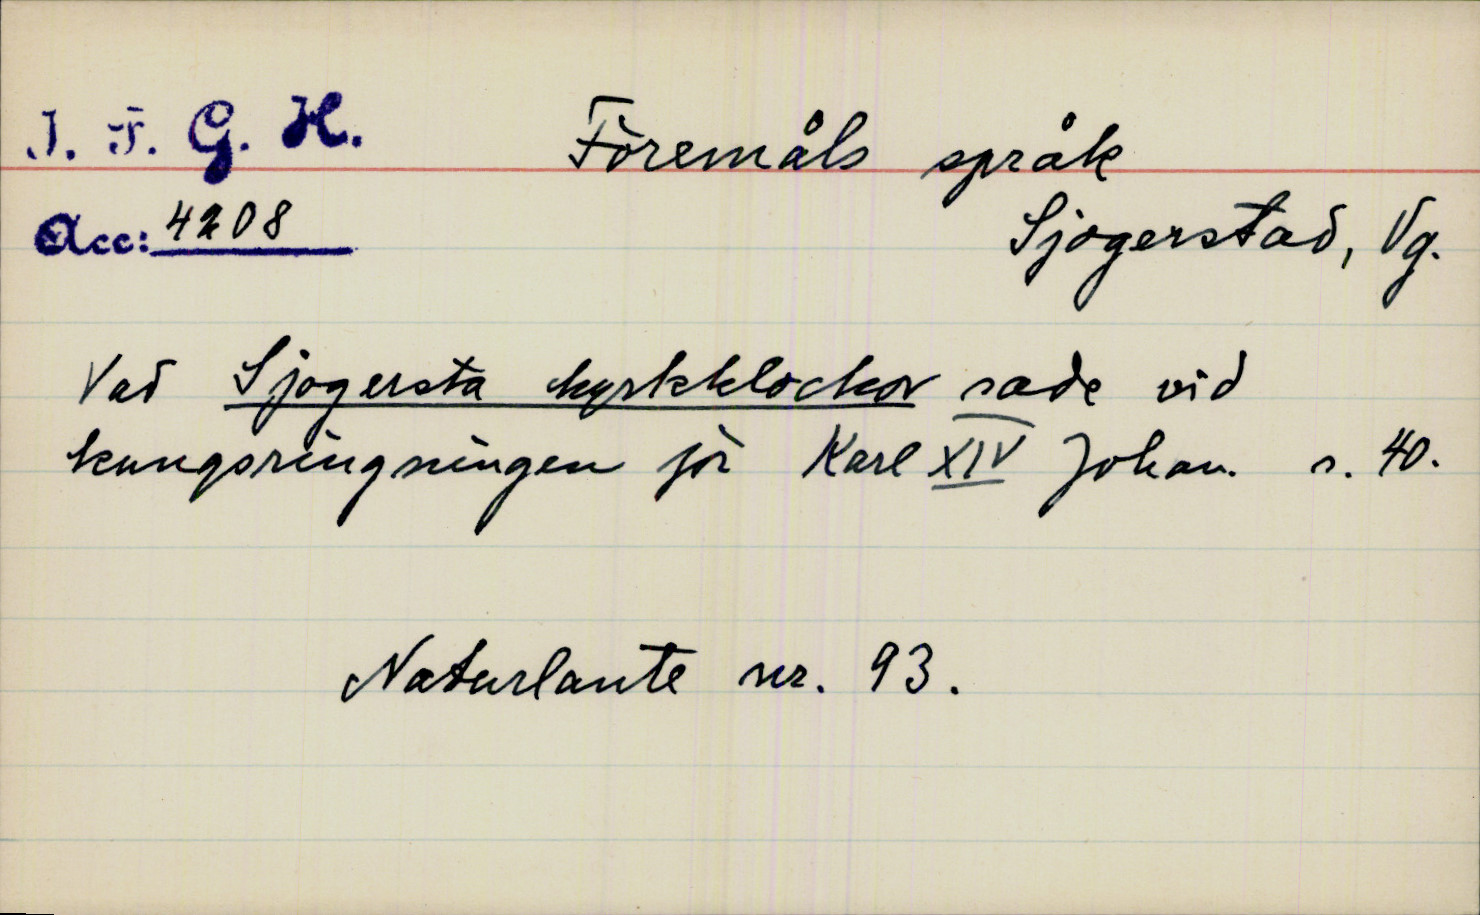 I. F. G. H.
Föremåls språk
Acc: 4208
Sjogerstad, Vg.
Vad Sjogersta kyrkklockor sade vid
kungsringningen för Karl XIV Johan. s. 40.
Naturlaute nr. 93.